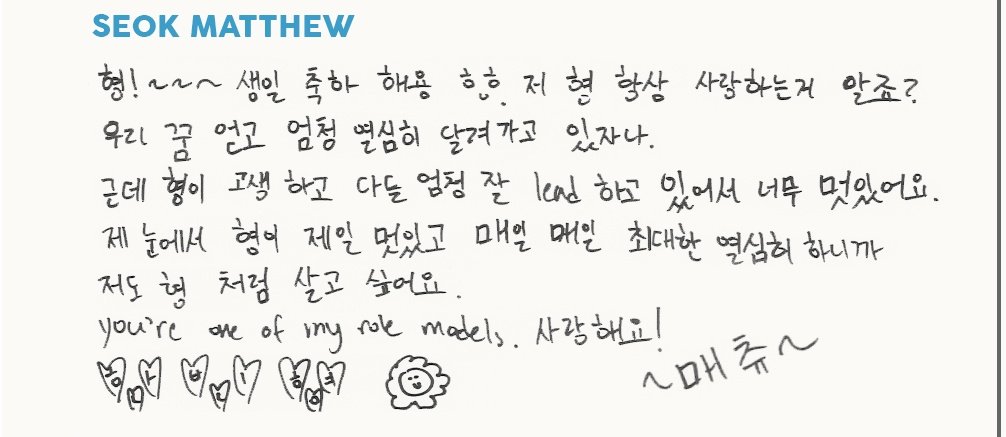 SEOK MATTHEW
형!~~~ 생일 축하 해용 흐흐. 저 형 항상 사랑하는거 알죠?
우리 꿈 얻고 엄청 열심히 달려가고 있자나.
근데 형이 고생 하고 다들 엄청 잘 lead 하고 있어서 너무 멋있어요.
제 눈에서 형이 제일 멋있고 매일 매일 최대한 열심히 하니까
저도 형 처럼 살고 싶어요.
you're one of my role models. 사랑해요!
~매츄~